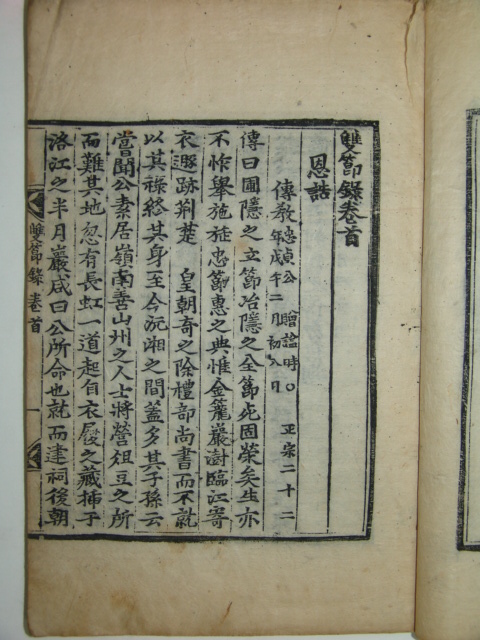 雙節錄卷首
恩誥
傳敎忠貞公 贈諡時○ 正宗二十二
年戊午二月初八日
傳曰圃隱之立節冶隱之全節死固榮矣生亦
不怍舉施旌忠節惠之典惟金籠巖澍臨江寄
衣遯跡荆楚 皇朝奇之除禮部尚書而不就
以其祿終其身至今沅湘之間蓋多其子孫云
嘗聞公素居嶺南善山州之人士將營俎豆之所
而難其地忽有長虹一道起自衣屨之藏揷于
洛江之半月巖咸曰公所命也就而建祠後朝
雙節錄 卷首 一